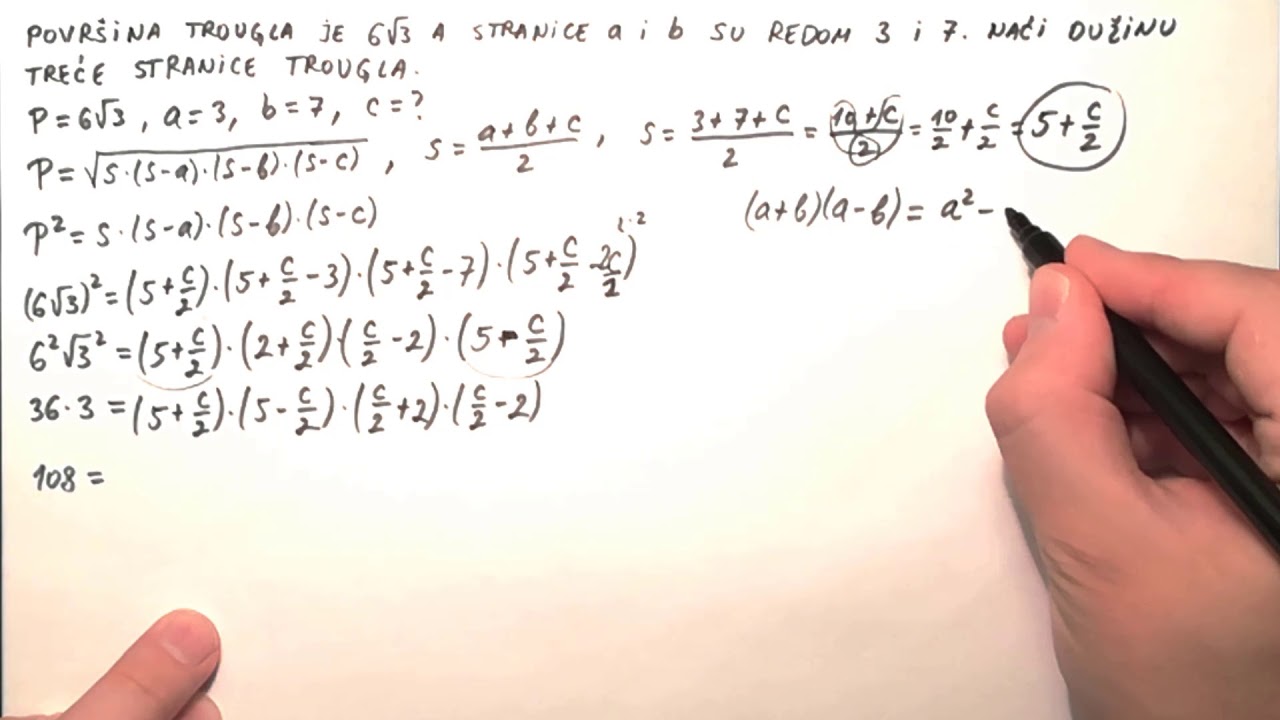 POVRŠINA TROUGLA JE 6√3 A STRANICE a i b SU REDOM 3 i 7. NAĆI DUŽINU
TREĆE STRANICE TROUGLA.
P=6√3, a=3, b=7, c=?
P=√(s·(s-a)·(s-b)·(s-c)), s=(a+b+c)/2, s=(3+7+c)/2=(10+c)/2=10/2+c/2=5+c/2
P²=s·(s-a)·(s-b)·(s-c) (a+b)(a-b)=a²-
(6√3)²=(5+c/2)·(5+c/2-3)·(5+c/2-7)·(5+c/2-2c/2)
6²√3²=(5+c/2)·(2+c/2)·(c/2-2)·(5-c/2)
36·3=(5+c/2)·(5-c/2)·(c/2+2)·(c/2-2)
108=